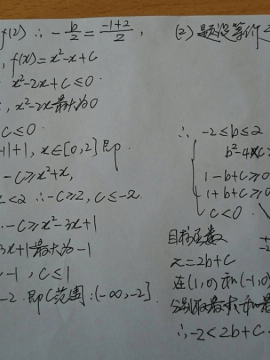 f(2) ∴ -b/2 = (-1+2)/2,
, f(x)=x²-x+c
x²-2x+c≤0.
, x²-2x最大为0
c≤0.
-1|+1, x∈[0,2] 即
-c≥x²+x,
x<2 ∴ -c≥2, c≤-2.
-c≥x²-3x+1
3x+1最大为-1
-1, c≤1
-2. 即c范围:(-∞,-2].
(2) 题设等价
∴ -2≤b≤2
b²-4×c
1-b+c≥0
1+b+c≥0
c<0
目标函数
z=2b+c
在(1,0)和(-1,0)
分别取最大和最
∴ -2<2b+c